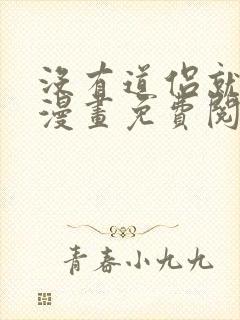 沒有道侶就
漫畫免費閱
青春小九九